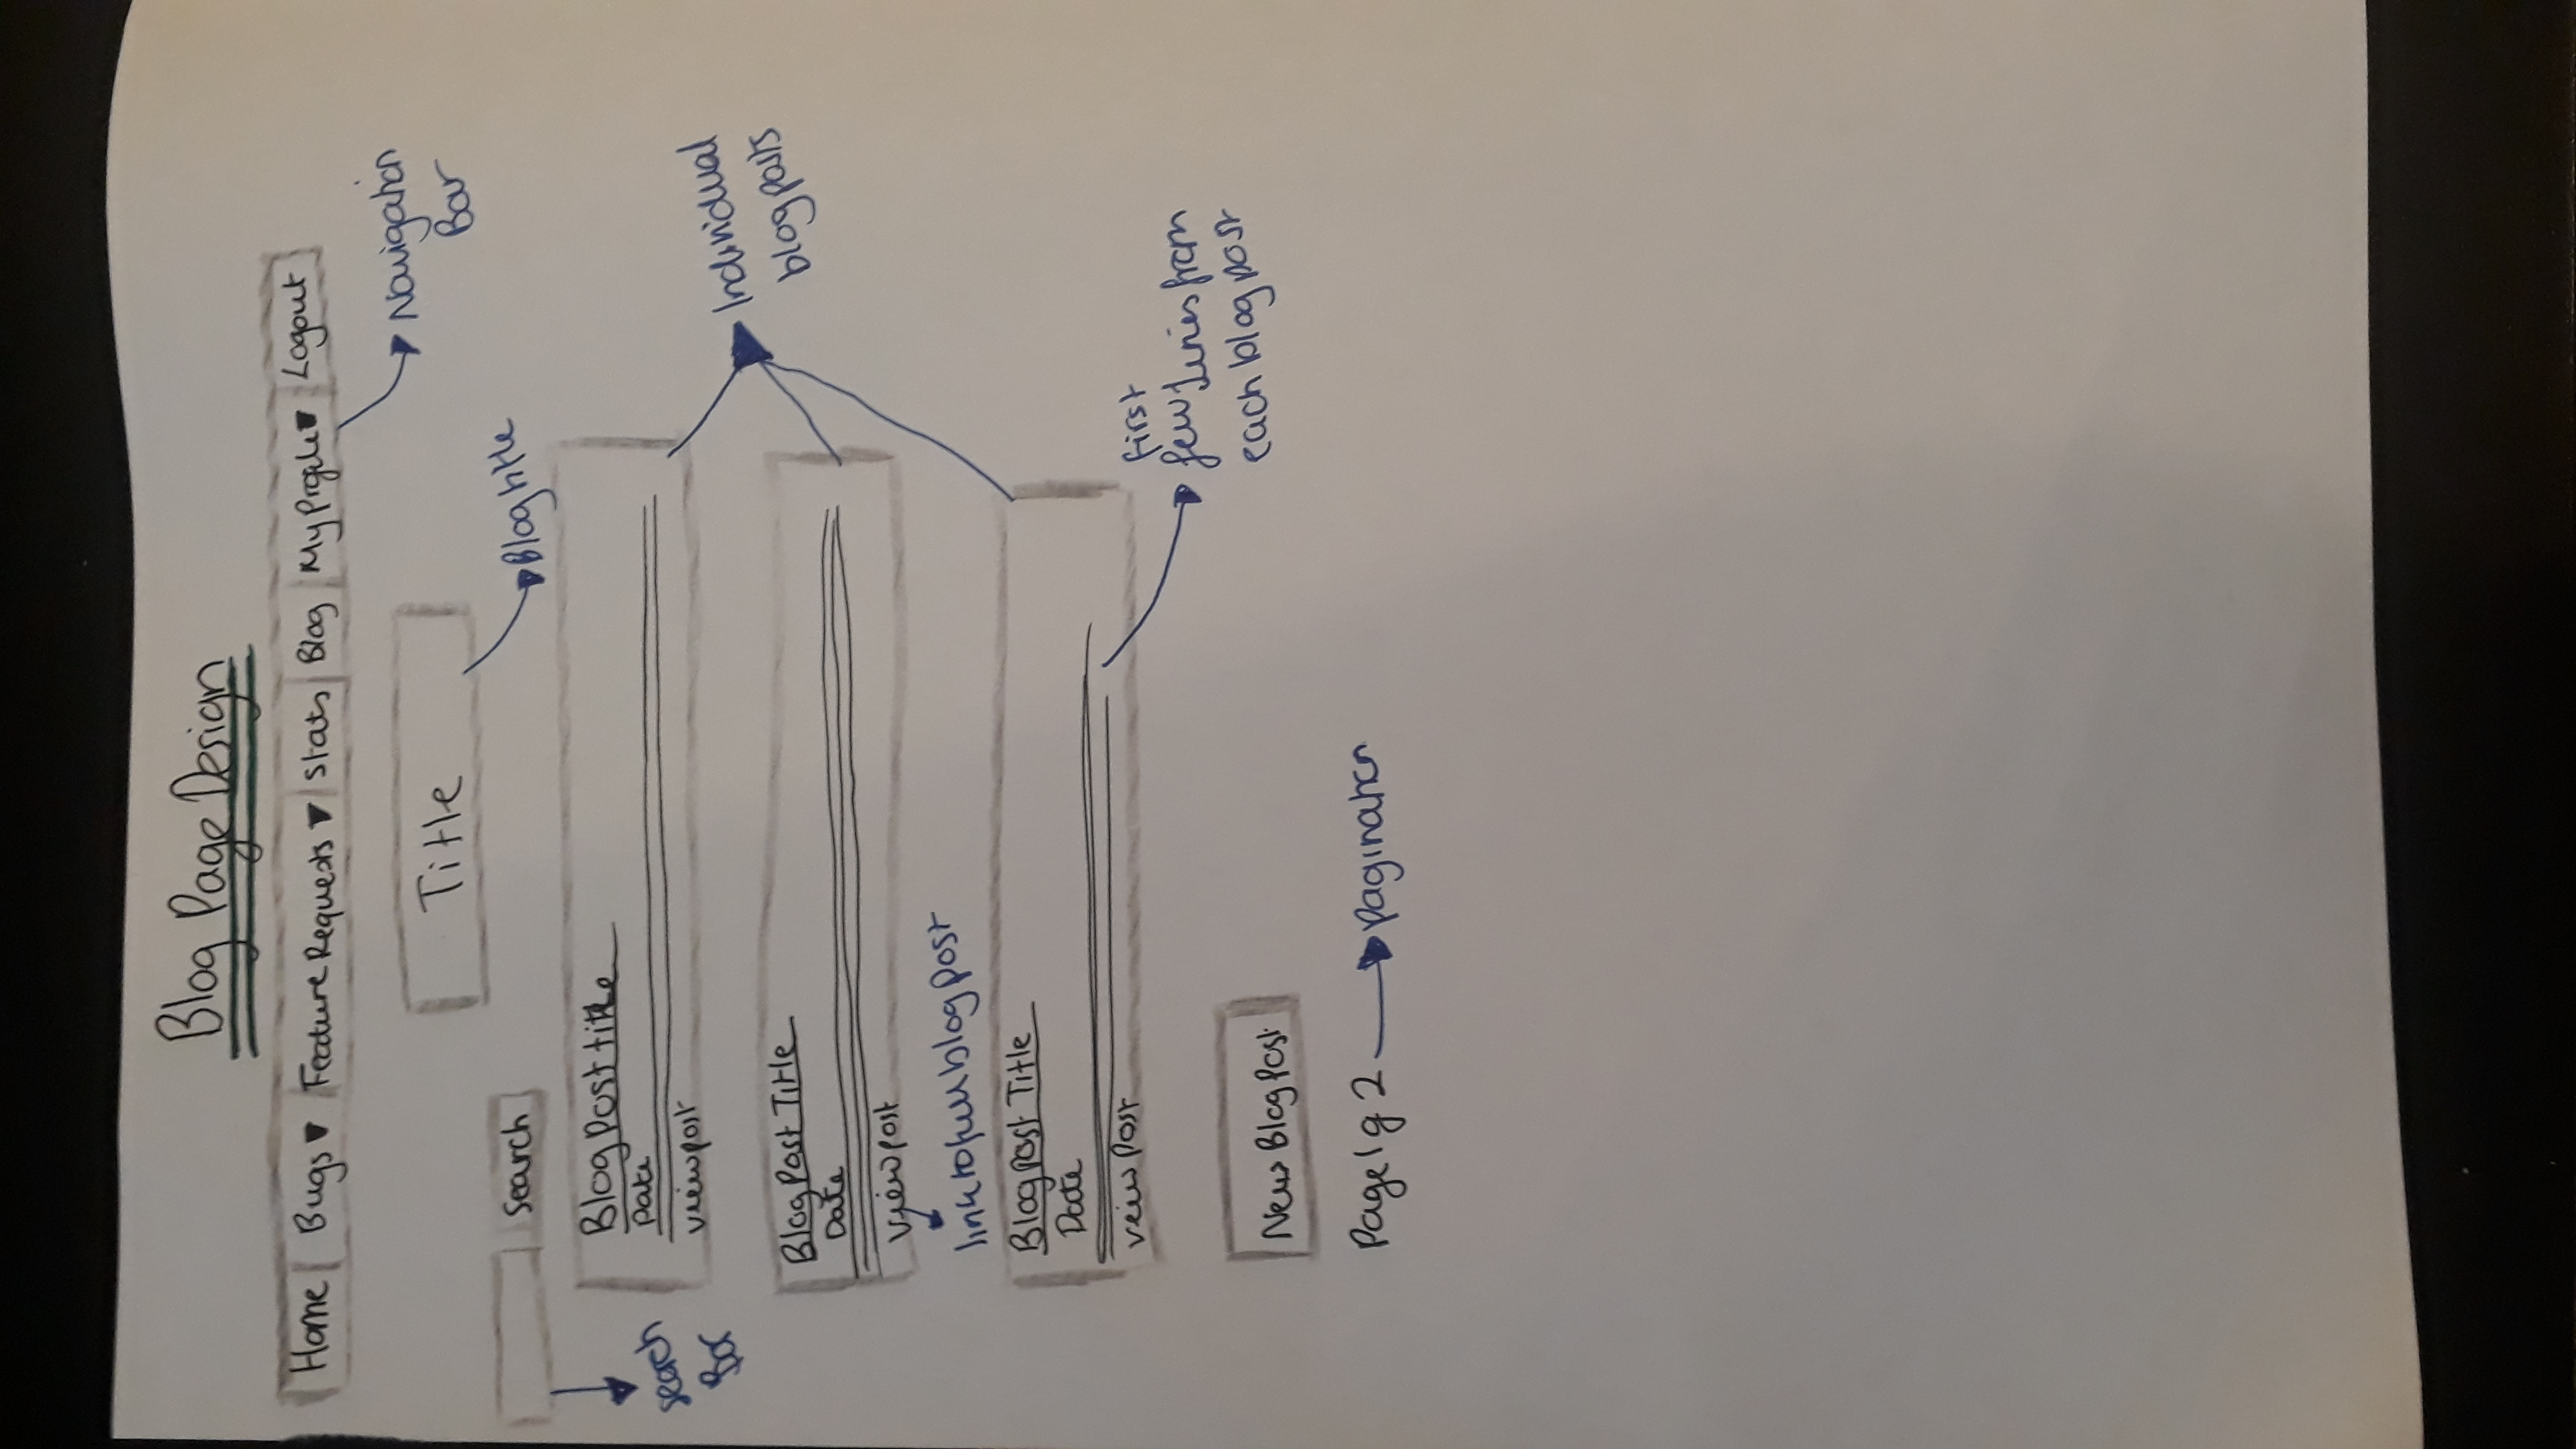 Blog Page Design
Home Bugs ▼ Feature Requests ▼ Stats Blog My Profile ▼ Logout
Navigation
Bar
Title
Blog title
Search
search
Bar
Blog post title
Date
view post
Individual
blog posts
Blog Post Title
Date
view post
link to full blog post
Blog post Title
Date
veiw post
first
few lines from
each blog post
New Blog Post
Page 1 of 2
pagination